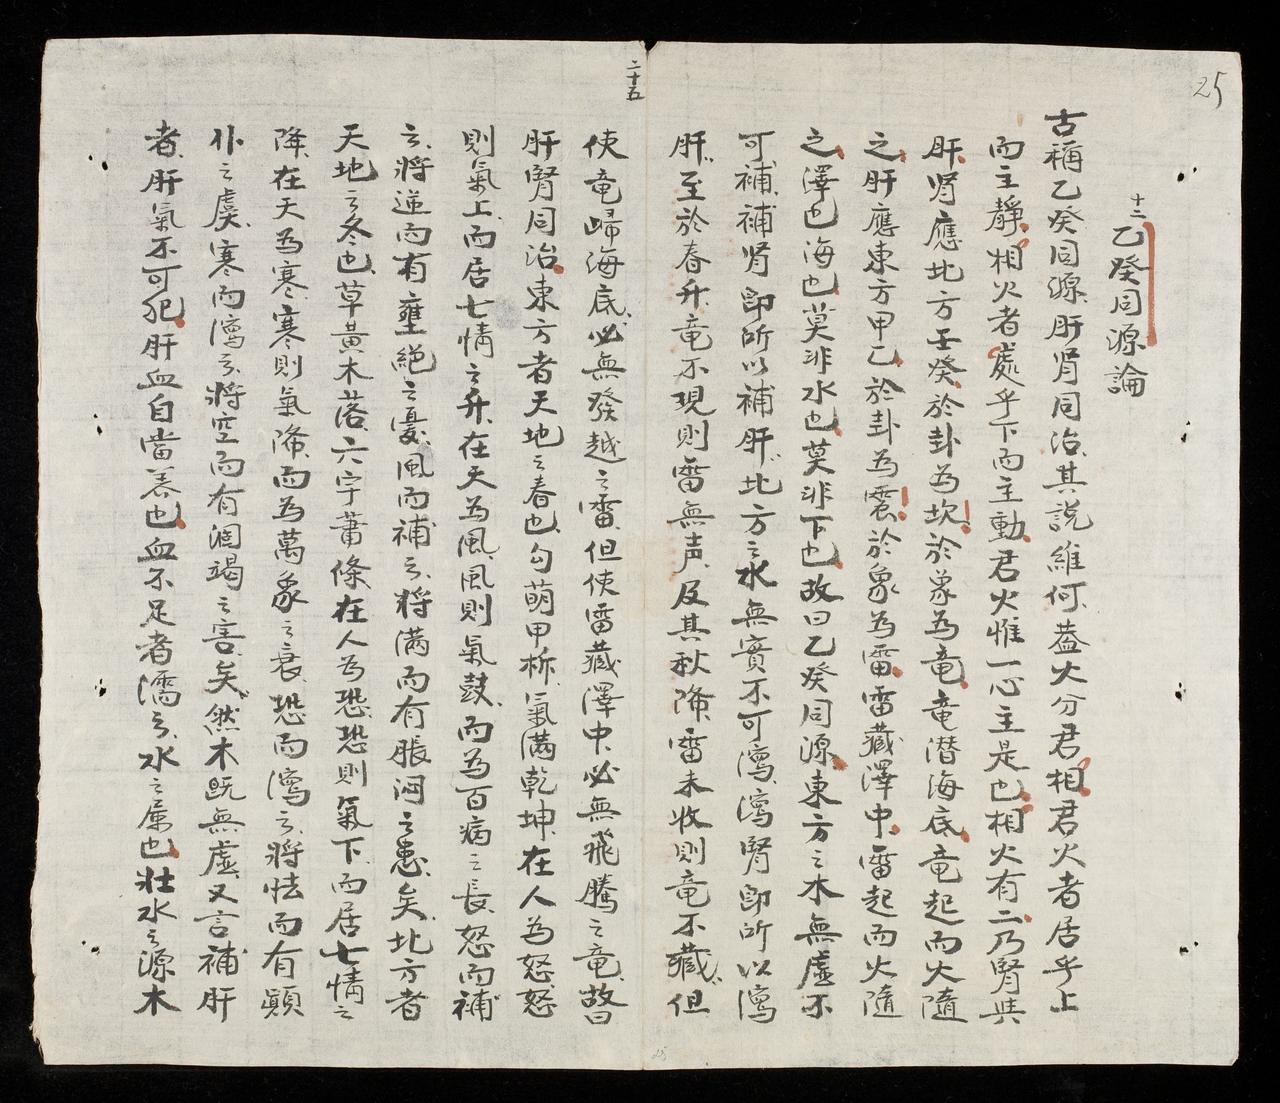 25
十二乙癸同源論
古稱乙癸同源肝肾同治其説維何葢火分君相君火者居乎上
而主靜相火者處乎下而主動君火惟一心主是也相火有二乃腎與
肝肾應北方壬癸於卦為坎於象為竜竜潜海底竜起而火隨
之肝應東方甲乙於卦為震於象為雷雷藏澤中雷起而火隨
之澤也海也莫非水也莫非下也故曰乙癸同源東方之木無虛不
可補補肾即所以補肝北方之水無實不可瀉瀉腎即所以瀉
肝至於春升竜不現則雷無声及其秋降雷未收則竜不藏但
二十五
使竜歸海底必無發越之雷但使雷藏澤中必無飛騰之竜故曰
肝腎同治東方者天地之春也勾萌甲柝氣滿乾坤在人為怒怒
則氣上而居七情之升在天為風風則氣鼓而為百病之長怒而補
之將逆而有壅絕之憂風而補之將满而有脹闷之患矣北方者
天地之冬也草黄木落六字蕭條在人為恐恐則氣下而居七情之
降在天為寒寒則氣降而為萬象之衰恐而瀉之將怯而有顚
仆之虞寒而瀉之將空而有涸竭之害矣然木既無虛又言補肝
者肝氣不可犯肝血自當养也血不足者濡之水之属也壮水之源木
25